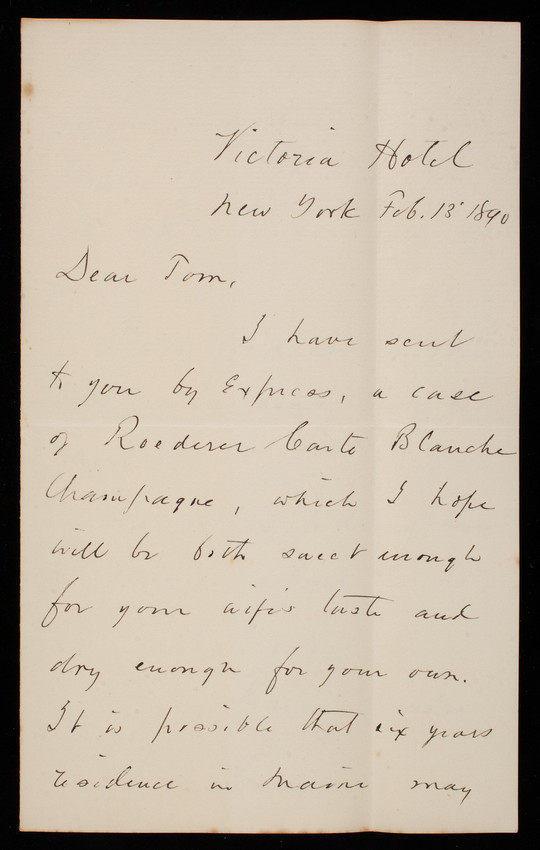 Victoria Hotel
New York Feb. 13' 1890
Dear Tom,
I have sent
to you by Express, a case
of Roederer Carte Blanche
Champagne, which I hope
will be both sweet enough
for your wife's taste and
dry enough for your own.
It is possible that six years
residence in Maine may